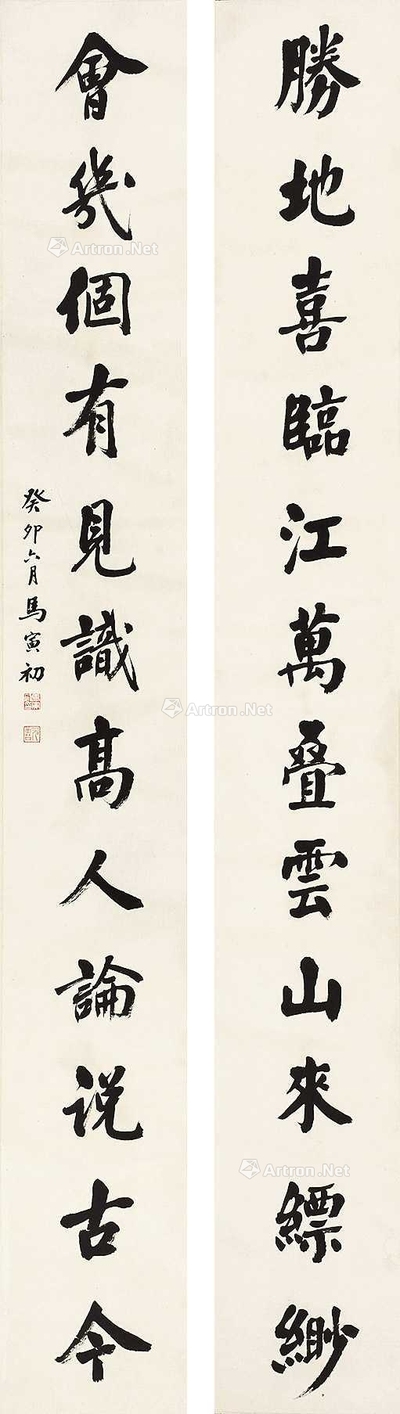 勝地喜臨江萬叠雲山來縹緲
會幾個有見識高人論说古今
癸卯六月馬寅初
Artron.Net
Artron.Net
Artron.Net